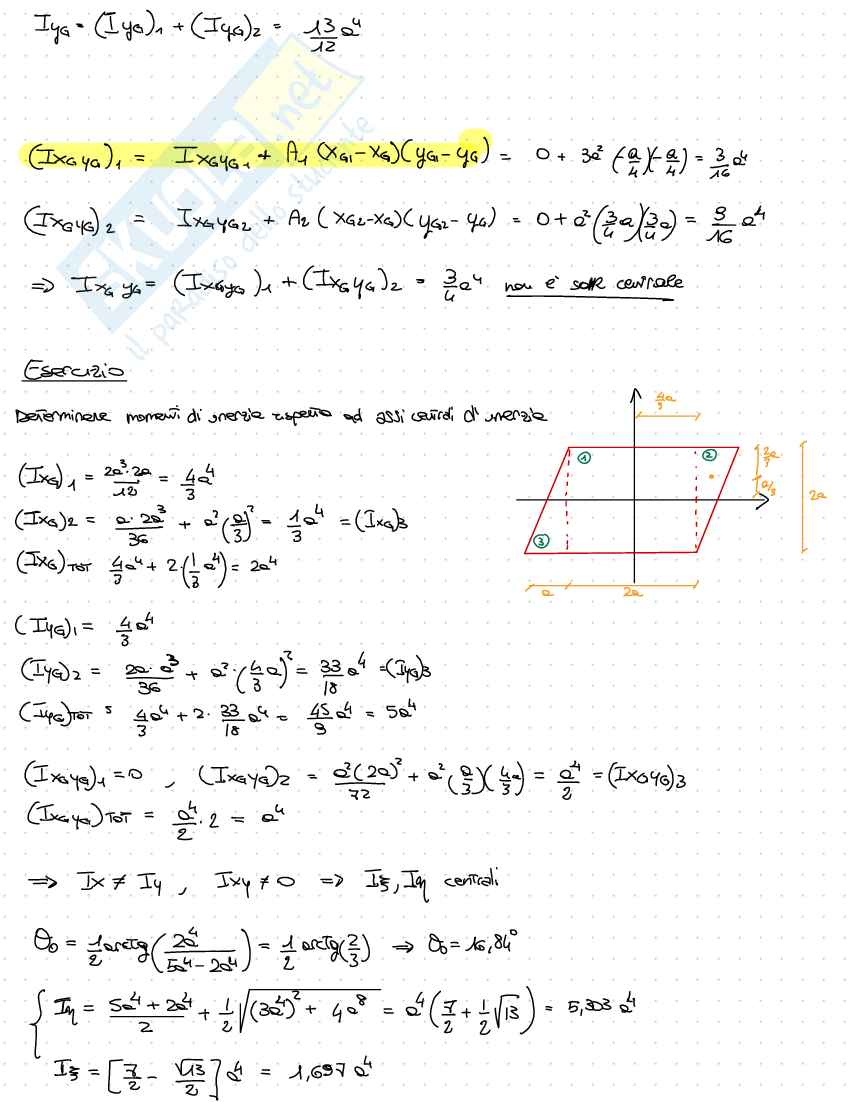 I_yG = (I_yG)_1 + (I_yG)_2 = 13/12 a^4
(I_xGyG)_1 = I_xG yG_1 + A_1 (x_G1 - x_G)(y_G1 - y_G) = 0 + 3a^2 (-a/4)(-a/4) = 3/16 a^4
(I_xGyG)_2 = I_xG yG_2 + A_2 (x_G2 - x_G)(y_G2 - y_G) = 0 + a^2 (3/4 a)(3/4 a) = 9/16 a^4
⇒ I_xG yG = (I_xGyG)_1 + (I_xG yG)_2 = 3/4 a^4 non è centrale
Esercizio
Determinare momenti di inerzia rispetto ad assi centrali d'inerzia
4a/3
① ②
2a/3
a/3
2a
③
a 2a
(I_xG)_1 = 2a^3·2a/12 = 4/3 a^4
(I_xG)_2 = a·2a^3/36 + a^2 (a/3)^2 = 1/3 a^4 = (I_xG)_3
(I_xG)_TOT 4/3 a^4 + 2·(1/3 a^4) = 2a^4
(I_yG)_1 = 4/3 a^4
(I_yG)_2 = 2a·a^3/36 + a^2·(4/3 a)^2 = 33/18 a^4 = (I_yG)_3
(I_yG)_TOT = 4/3 a^4 + 2·33/18 a^4 = 45/9 a^4 = 5a^4
(I_xGyG)_1 = 0 , (I_xGyG)_2 = a^2(2a)^2/72 + a^2 (a/3)(4a/3) = a^4/2 = (I_xGyG)_3
(I_xGyG)_TOT = a^4/2 · 2 = a^4
⇒ Ix ≠ Iy , Ixy ≠ 0 ⇒ Iξ, Iη centrali
θ_0 = 1/2 arctg(2a^4/(5a^4 - 2a^4)) = 1/2 arctg(2/3) ⇒ θ_0 = 16,84°
Iη = (5a^4 + 2a^4)/2 + 1/2 √((3a^4)^2 + 4a^8) = a^4 (7/2 + 1/2 √13) = 5,303 a^4
Iξ = [7/2 - √13/2] a^4 = 1,697 a^4
SKUOLA.net
il paradiso dello studente